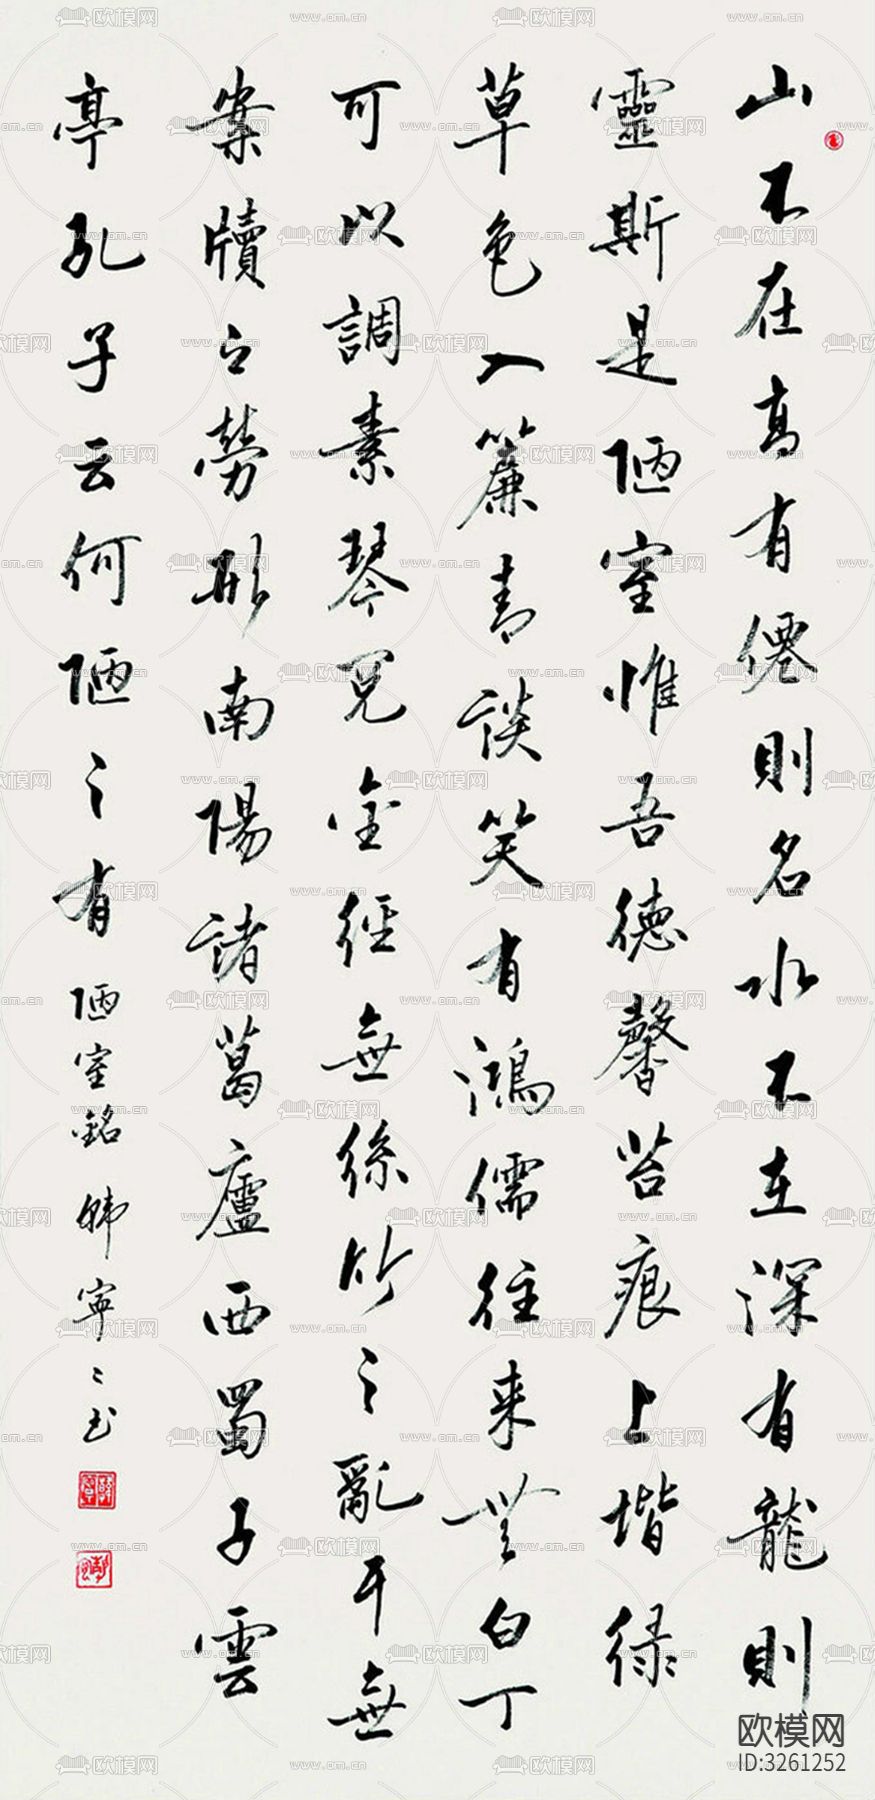 山不在高有僊則名水不在深有龍則
靈斯是陋室惟吾德馨苔痕上堦绿
草色入簾青談笑有鴻儒往来無白丁
可以調素琴閱金經無絲竹之亂耳無
案牘之勞形南陽諸葛廬西蜀子雲
亭孔子云何陋之有 陋室銘 韩寧〻书
欧模网
www.om.cn
欧模网
ID:3261252